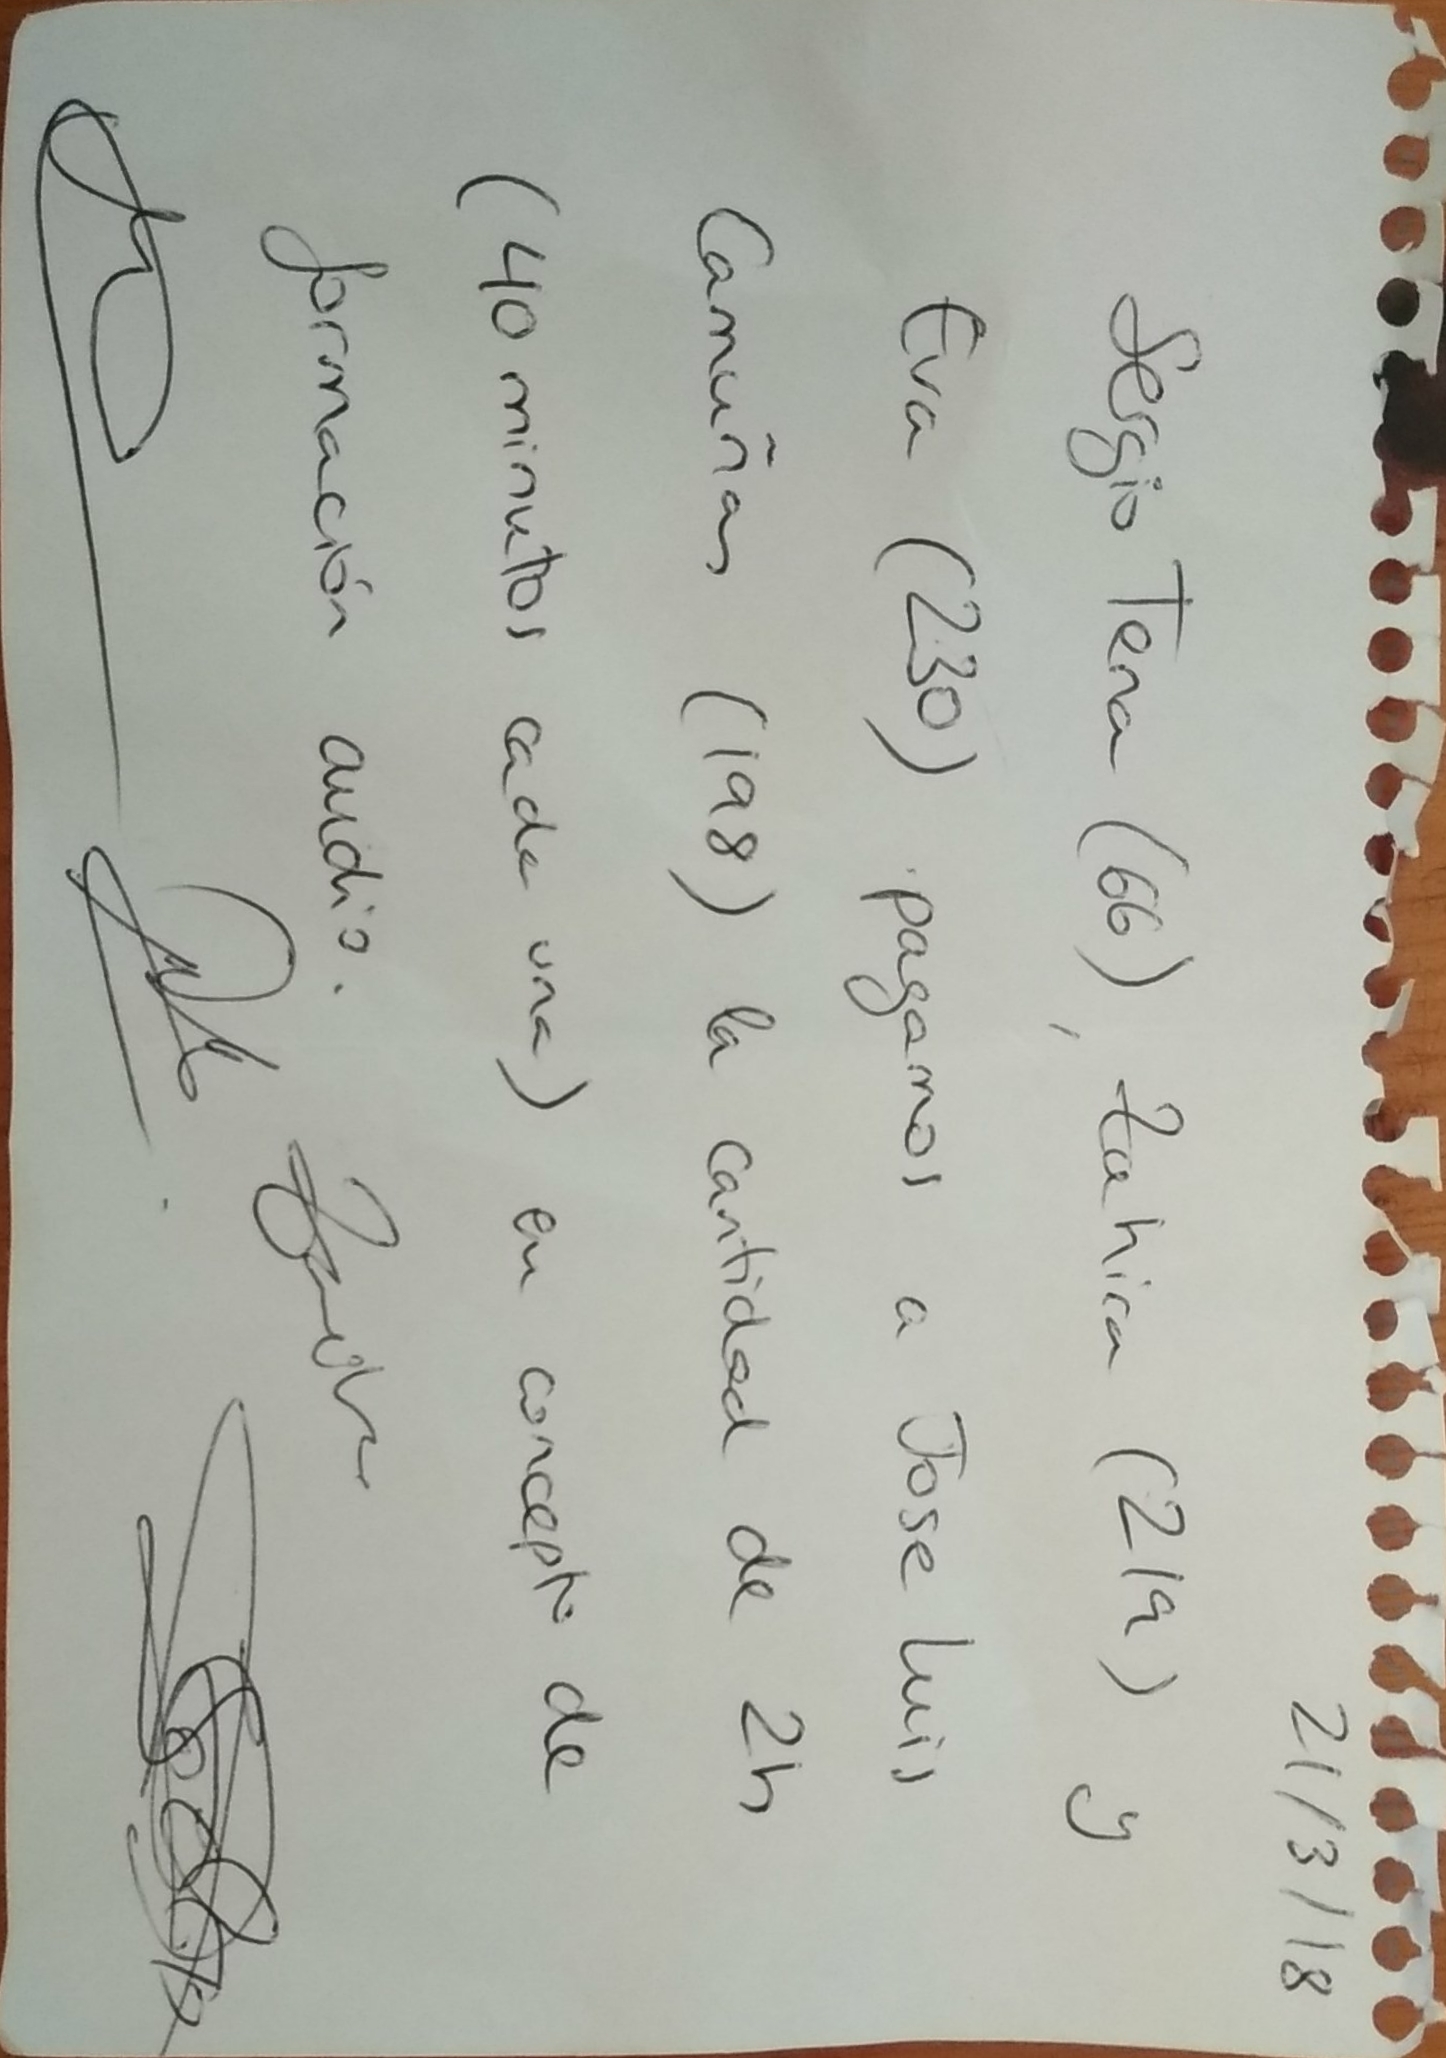 21/3/18
Sergio Tena (66), Zahira (219) y
Eva (230) pagamos a Jose Luis
Camuñas (198) la cantidad de 2h
(40 minutos cada una) en concepto de
formación audio.